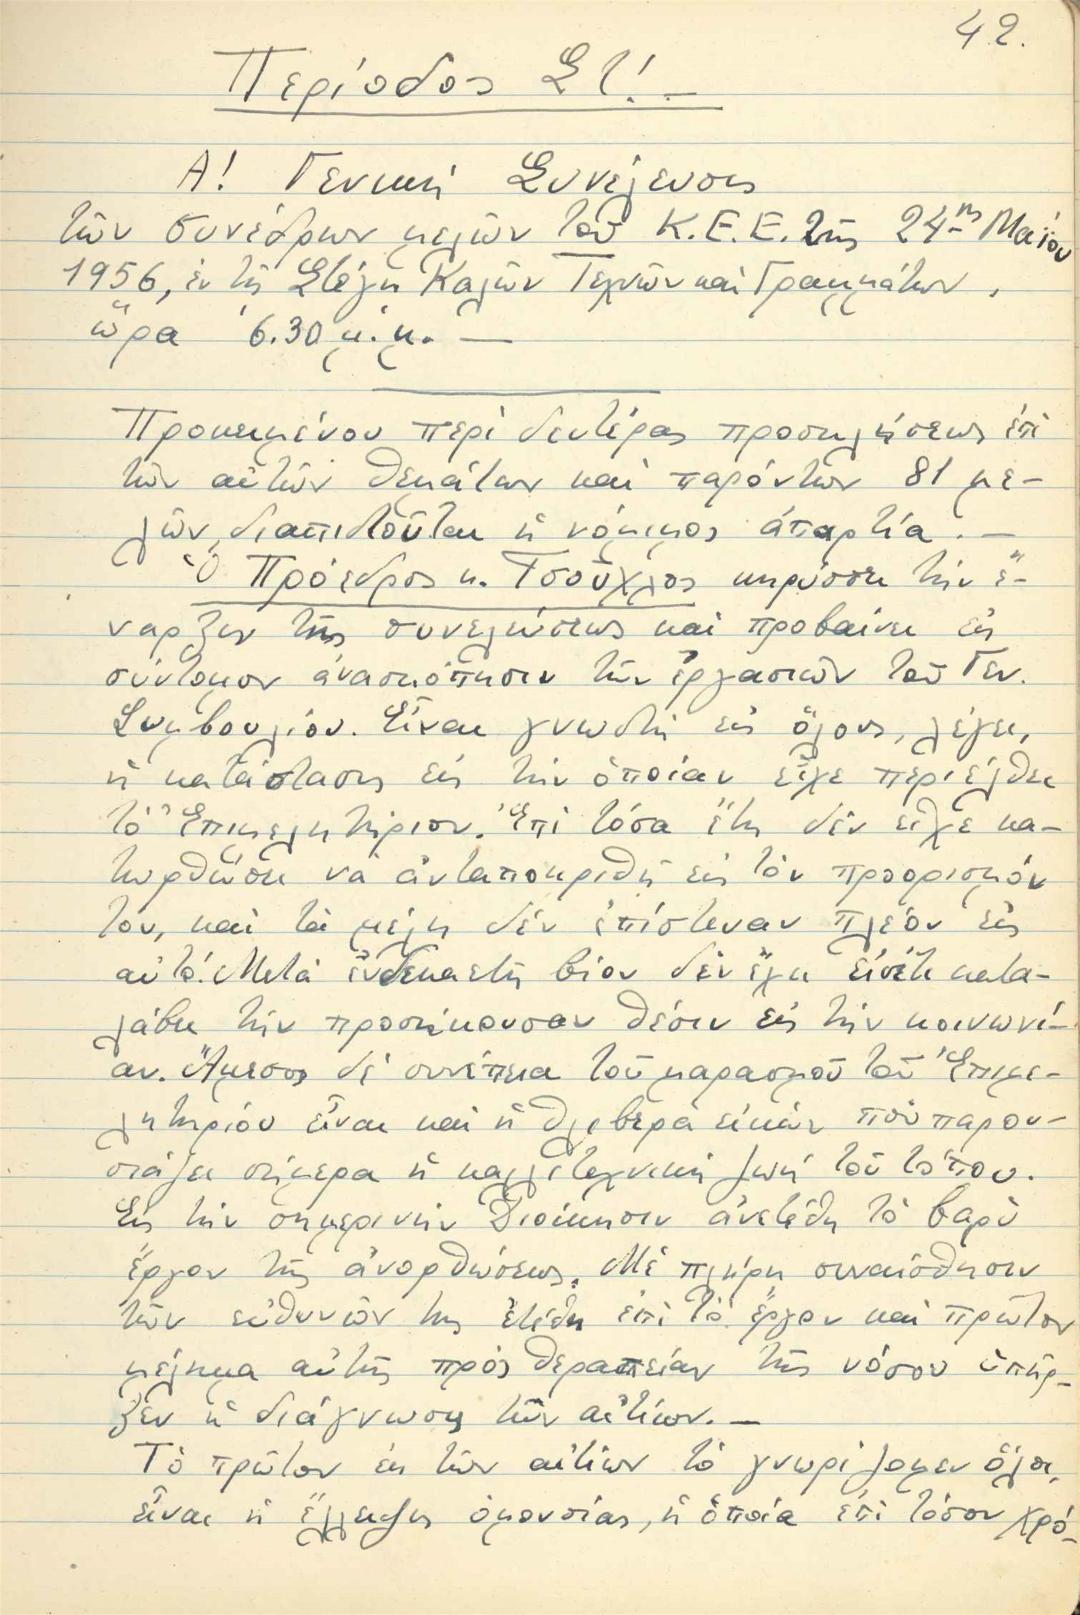 42.
Περίοδος ΣΤ! –
Α! Γενική Συνέλευσις
τῶν συνέδρων μελῶν τοῦ Κ.Ε.Ε. τῆς 24ης Μαΐου
1956, ἐν τῇ Στέγῃ Καλῶν Τεχνῶν καὶ Γραμμάτων,
ὥρα 6.30 μ.μ. —
Προκειμένου περὶ δευτέρας προσκλήσεως ἐπὶ
τῶν αὐτῶν θεμάτων καὶ παρόντων 81 με-
λῶν, διαπιστοῦται ἡ νόμιμος ἀπαρτία. –
Ὁ Πρόεδρος κ. Τσοῦχλος κηρύσσει τὴν ἔ-
ναρξιν τῆς συνελεύσεως καὶ προβαίνει εἰς
σύντομον ἀνασκόπησιν τῶν ἐργασιῶν τοῦ Γεν.
Συμβουλίου. Εἶναι γνωστὴ εἰς ὅλους, λέγει,
ἡ κατάστασις εἰς τὴν ὁποίαν εἶχε περιέλθει
τὸ Ἐπιμελητήριον. Ἐπὶ τόσα ἔτη δὲν εἶχε κα-
τωρθώσει νὰ ἀνταποκριθῇ εἰς τὸν προορισμόν
του, καὶ τὰ μέλη δὲν ἐπίστευαν πλέον εἰς
αὐτό. Μετὰ ἑνδεκαετῆ βίον δὲν ἔχει εἰσέτι κατα-
λάβει τὴν προσήκουσαν θέσιν εἰς τὴν κοινωνί-
αν. Ἄμεσος δὲ συνέπεια τοῦ μαρασμοῦ τοῦ Ἐπιμε-
λητηρίου εἶναι καὶ ἡ θλιβερὰ εἰκὼν ποὺ παρου-
σιάζει σήμερα ἡ καλλιτεχνικὴ ζωὴ τοῦ τόπου.
Εἰς τὴν σημερινὴν Διοίκησιν ἀνετέθη τὸ βαρὺ
ἔργον τῆς ἀνορθώσεως. Μὲ πλήρη συναίσθησιν
τῶν εὐθυνῶν της ἐτέθη ἐπὶ τὸ ἔργον καὶ πρῶτον
μέλημα αὐτῆς πρὸς θεραπείαν τῆς νόσου ὑπῆρ-
ξεν ἡ διάγνωσις τῶν αἰτίων. –
Τὸ πρῶτον ἐκ τῶν αἰτίων τὸ γνωρίζομεν ὅλοι,
εἶναι ἡ ἔλλειψις ὁμονοίας, ἡ ὁποία ἐπὶ τόσον χρό-